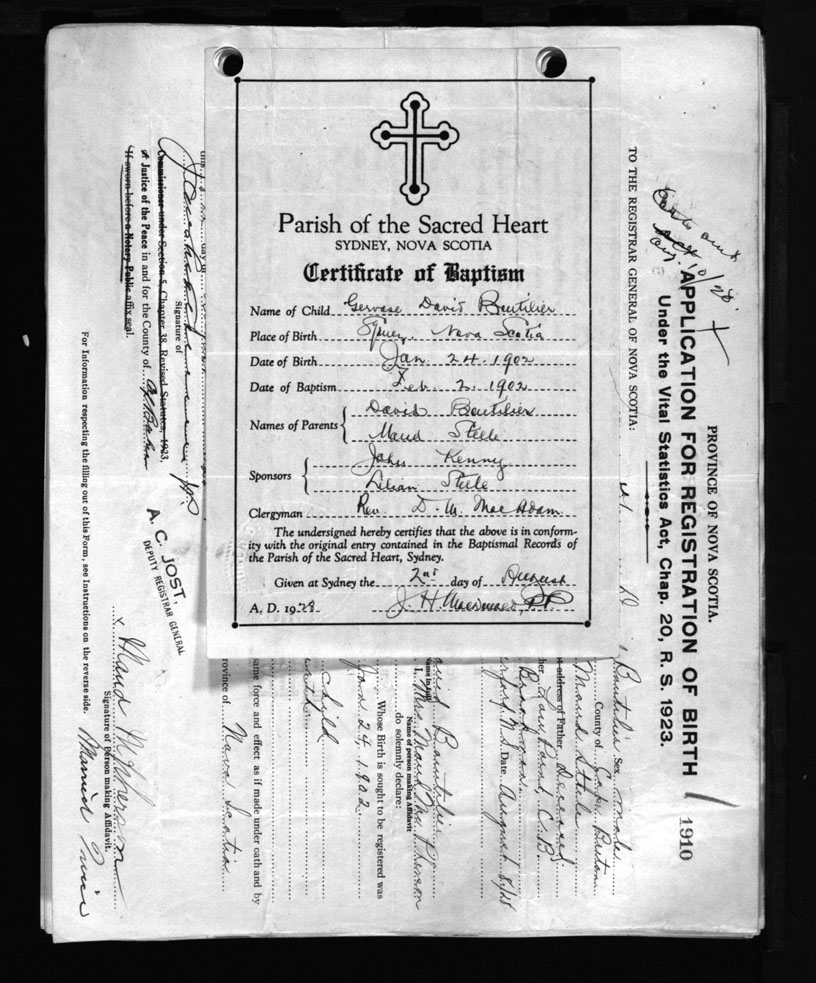 Parish of the Sacred Heart
SYDNEY, NOVA SCOTIA
Certificate of Baptism
Name of Child Gervase David Boutilier
Place of Birth Sydney, Nova Scotia
Date of Birth Jan. 24. 1902
Date of Baptism Feb. 2. 1902
Names of Parents { David Boutilier
Maud Steele
Sponsors { John Kenny
Lilian Steele
Clergyman Rev. D. M. MacAdam
The undersigned hereby certifies that the above is in conform-
ity with the original entry contained in the Baptismal Records of
the Parish of the Sacred Heart, Sydney.
Given at Sydney the 2nd day of August
A. D. 1928. J. H.
PROVINCE OF NOVA SCOTIA.
APPLICATION FOR REGISTRATION OF BIRTH
Under the Vital Statistics Act, Chap. 20, R. S. 1923.
1910
TO THE REGISTRAR GENERAL OF NOVA SCOTIA:
Boutilier Sex male
County of Cape Breton
Maud Steele
address of Father Deceased
Low Point, C. B.
N.S. Date, August
David Boutilier
Name in full
I, Mrs. Maud McPherson
Name of person making Affidavit
do solemnly declare:
Whose Birth is sought to be registered was
Jan. 24. 1902
child
same force and effect as if made under oath and by
rovince of Nova Scotia
day of
Signature of
Commissioner under Section 5, Chapter 38, Revised Statutes, 1923,
A Justice of the Peace in and for the County of C. Breton
If sworn before a Notary Public affix seal.
A. C. JOST,
DEPUTY REGISTRAR GENERAL
x Maud McPherson
Signature of Person making Affidavit.
For Information respecting the filling out of this Form, see Instructions on the reverse side.
Married